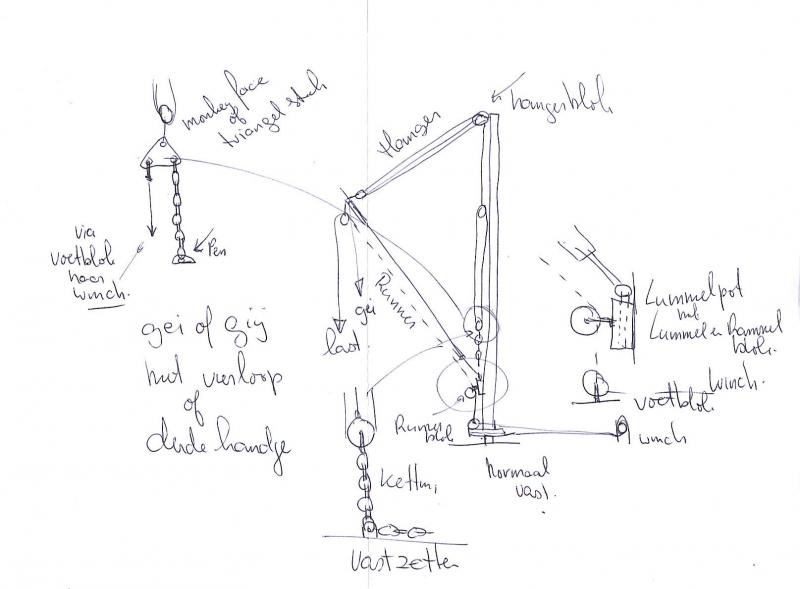 monkey face
of
triangel stuk
Hanger
hangerblok
via
voetblok
naar
winch.
Pen
gei of gij
met verloop
of
derde handje
last
gei
Runner
Lummelpot
met
Lummel en
blok.
winch.
voetblok
Runner
blok
winch
Normaal
vast.
vastzetten